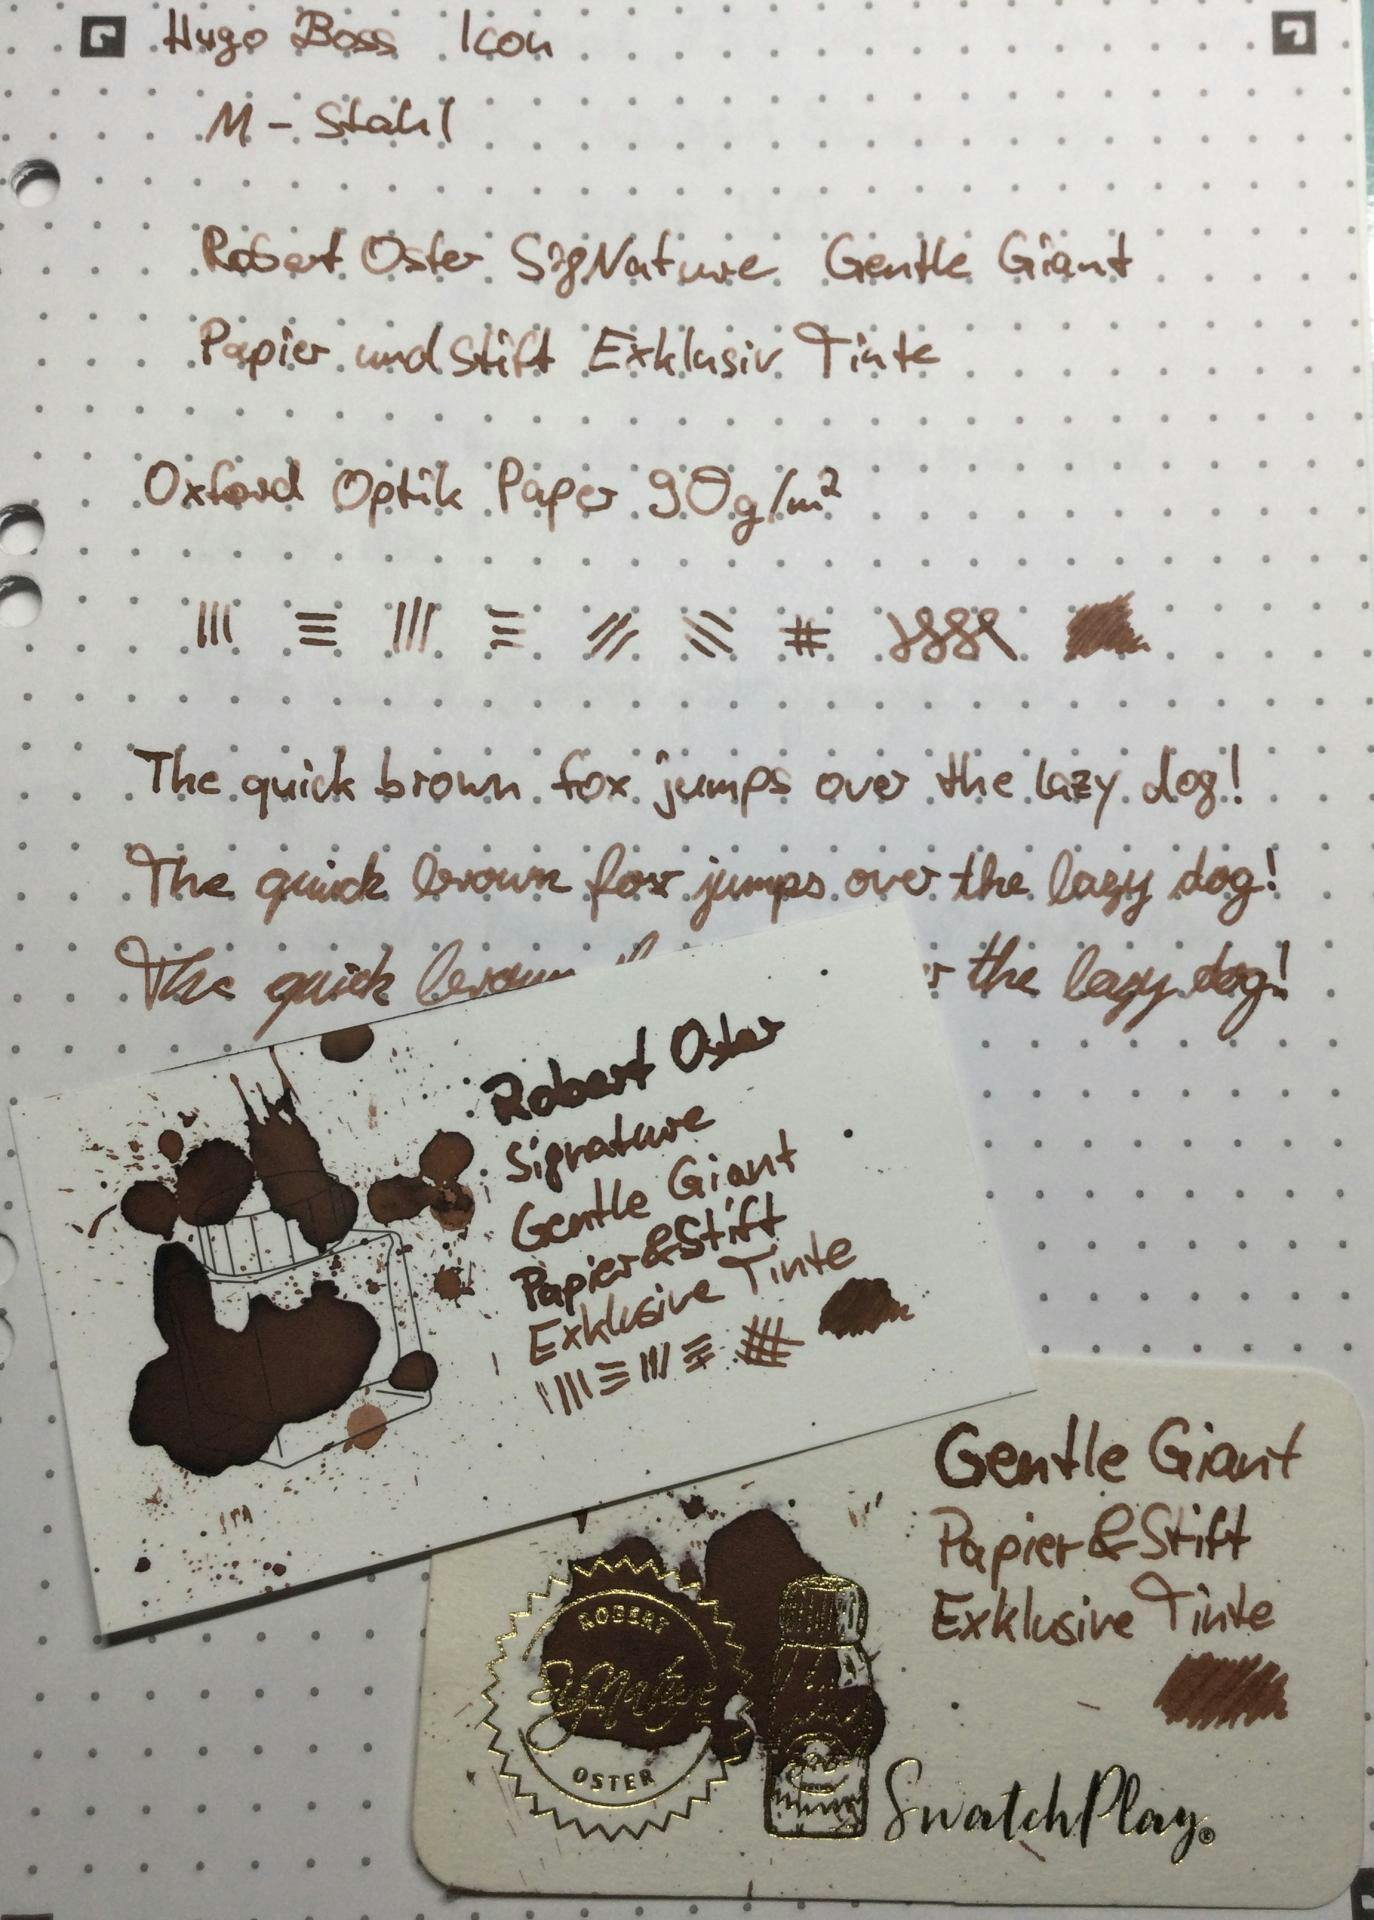 Hugo Boss Icon
M - Stahl
Robert Oster SigNature Gentle Giant
Papier und Stift Exklusiv Tinte
Oxford Optik Paper 90g/m²
The quick brown fox jumps over the lazy dog!
The quick brown fox jumps over the lazy dog!
The quick brown the lazy dog!
Robert Oster
Signature
Gentle Giant
Papier&Stift
Exklusive Tinte
Gentle Giant
Papier&Stift
Exklusive Tinte
ROBERT
SigNature
OSTER
SwatchPlay®